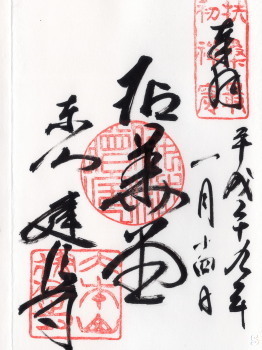 扶桑最初禅窟
奉拝
平成二十九年
一月
拈華堂
東山
建仁寺
大本山建仁寺